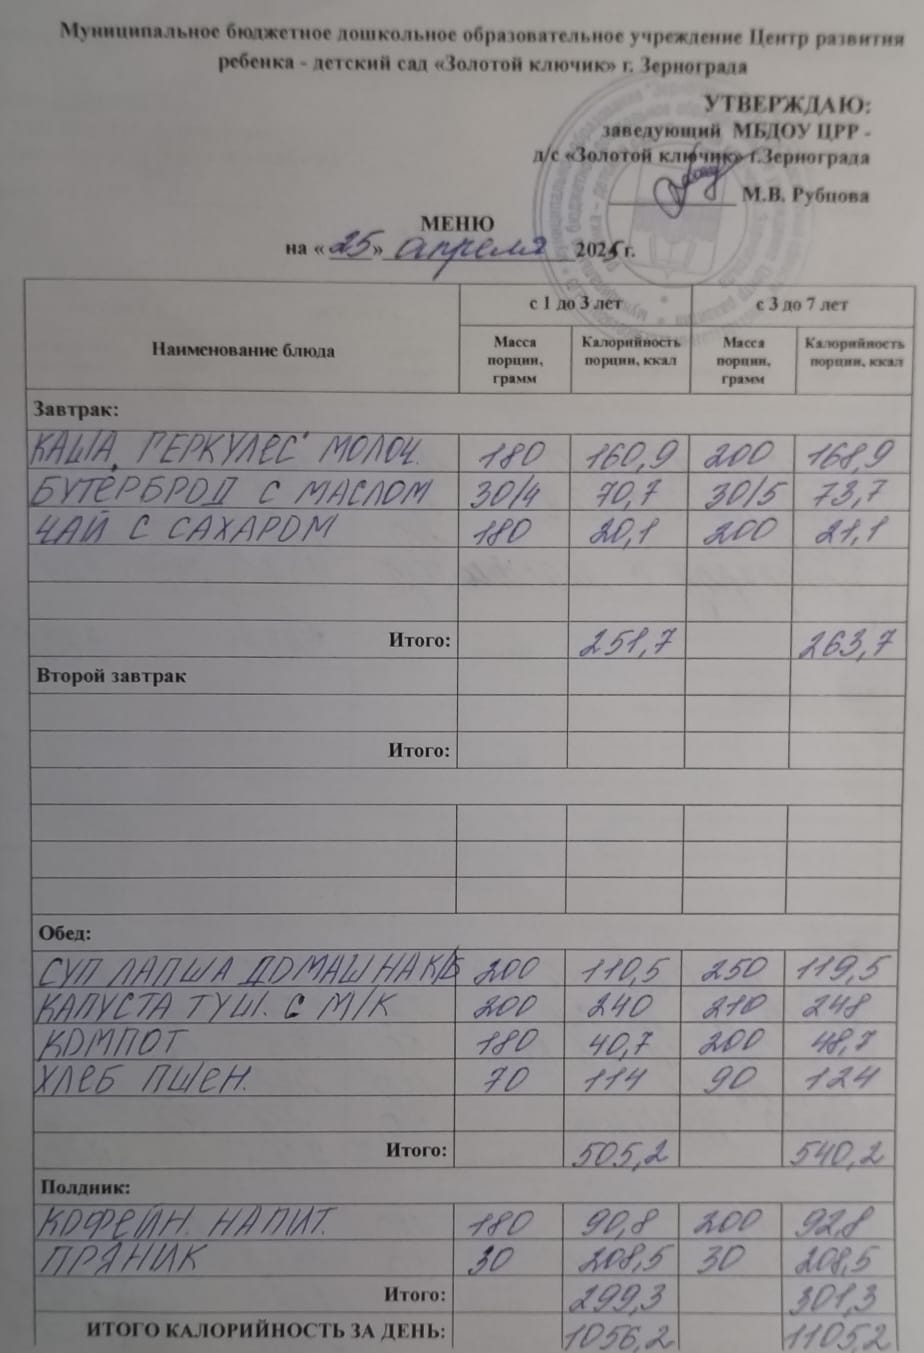 Муниципальное бюджетное дошкольное образовательное учреждение Центр развития
ребенка - детский сад «Золотой ключик» г. Зернограда
УТВЕРЖДАЮ:
заведующий МБДОУ ЦРР -
д/с «Золотой ключик» г.Зернограда
М.В. Рубцова
МЕНЮ
на «25» апреля 2025 г.
Наименование блюда с 1 до 3 лет с 3 до 7 лет
Масса порции, грамм Калорийность порции, ккал Масса порции, грамм Калорийность порции, ккал
Завтрак:
КАША "ГЕРКУЛЕС" МОЛОЧ. 180 160,9 200 168,9
БУТЕРБРОД С МАСЛОМ 30/4 70,7 30/5 73,7
ЧАЙ С САХАРОМ 180 20,1 200 21,1
Итого: 251,7 263,7
Второй завтрак
Итого:
Обед:
СУП ЛАПША ДОМАШ НА К/Б 200 110,5 250 119,5
КАПУСТА ТУШ. С М/К 200 240 210 248
КОМПОТ 180 40,7 200 48,7
ХЛЕБ ПШЕН. 70 114 90 124
Итого: 505,2 540,2
Полдник:
КОФЕЙН. НАПИТ. 180 90,8 200 92,8
ПРЯНИК 30 208,5 30 208,5
Итого: 299,3 301,3
ИТОГО КАЛОРИЙНОСТЬ ЗА ДЕНЬ: 1056,2 1105,2